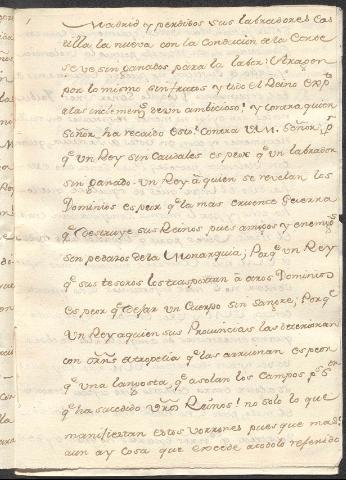 Madrid y perdidos sus labradores Cas
tilla la nueva con la Condicion de la Corte
se ve sin ganados para la labor: Aragon
por lo mismo sin frutos y todo el Reino
a las inclemen.s de un ambicioso! y contra quien
Señor ha recaido esto! Contra V. M. Señor, p.r
q.e un Rey sin Caudales es peor q.e un labrador
sin ganado. un Rey à quien se revelan los
Dominios es peor q.e la mas cruente Guerra
q.e destruye sus Reinos pues amigos y enemig.s
son pedazos de la Monarquia; Porq.e un Rey
q.e sus tesoros los trasportan à otros Dominios
es peor q.e dejar un Cuerpo sin sangre; Porq.e
un Rey a quien sus Provincias las deterioran
con q.e las arruinan es peor
q.e una langosta, q.e asolan los Campos
q.e ha sucedido Reinos! no solo lo que
manifiestan estos borrones pues que mas!
aun ay Cosa que excede a todo lo referido